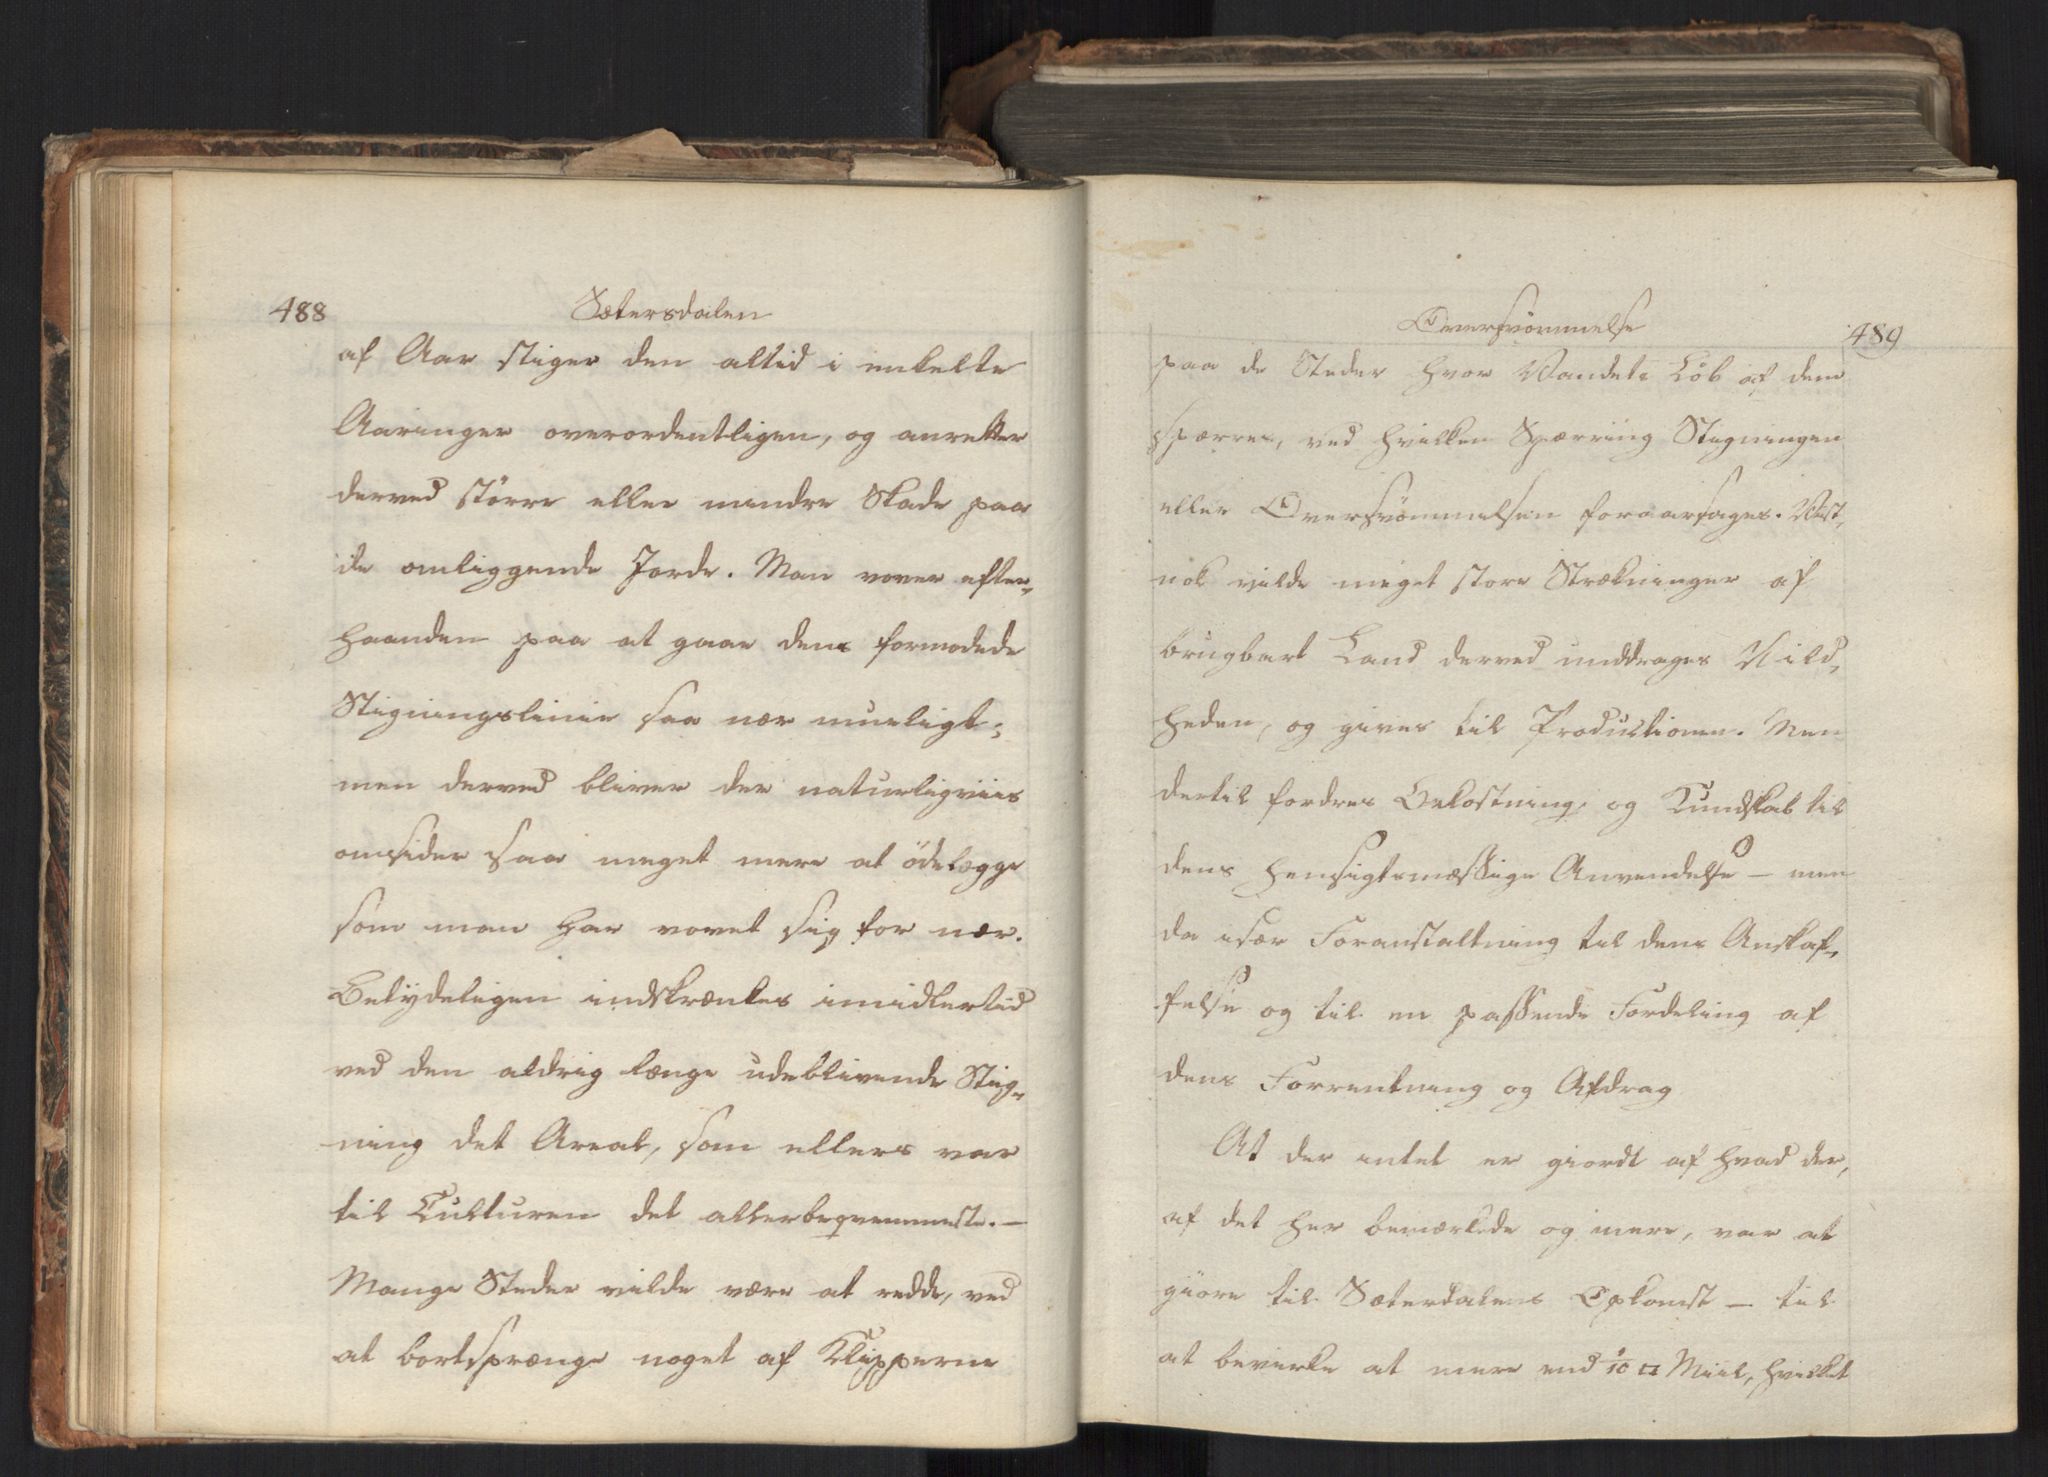 488
Sætersdalen
af Aar stiger den altid i enkelte
Aaringer overordentligen, og anretter
derved större eller mindre Skade paa
de omliggende Jorde. Man vover efter-
haanden paa at gaae dens formodede
Stigningslinie saa nær mueligt;
men derved bliver der naturligviis
omsider saa meget mere at ödelægge
som man har vovet sig for nær.
Betydeligen indskrænkes imidlertid
ved den aldrig længe udeblivende Stig-
ning det Areal, som ellers var
til Culturen det allerbeqvemmeste. —
Mange Steder vilde være at redde, ved
at bortsprænge noget af Klipperne
Oversvömmelse
489
paa de Steder hvor Vandets Löb af dem
spærres, ved hvilken Spærring Stigningen
eller Oversvömmelsen foraarsages. Vist-
nok vilde meget store Strækninger af
brugbart Land derved unddrages Vild-
heden, og gives til Productionen. Men
dertil fordres Bekostning, og Kundskab til
dens hensigtsmæssige Anvendelse — men
da især Foranstaltning til dens Anskaf-
felse og til en passende Fordeling af
dens Forrentning og Afdrag
At der intet er giordt af hvad der,
af det her bemærkede og mere, var at
giöre til Sæterdalens Opkomst — til
at bevirke at mere end /10 □ Miil, hvilket